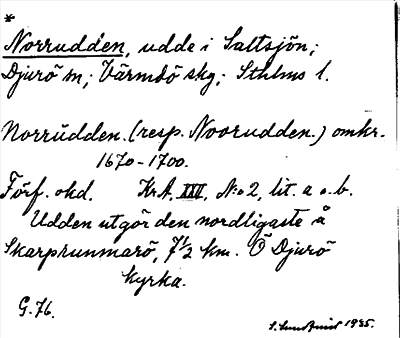 *
Norrudden, udde i Saltsjön;
Djurö sn; Värmdö skg; Sthlms l.
Norrúdden. (resp. Noorudden.) omkr.
1670-1700.
Förf. okd. Kr.A, XXX, N:o 2, lit. a o. b.
Udden utgör den nordligaste å
Skarprunmarö, 7 1/2 km. O Djurö
kyrka.
G. 76.
1935.